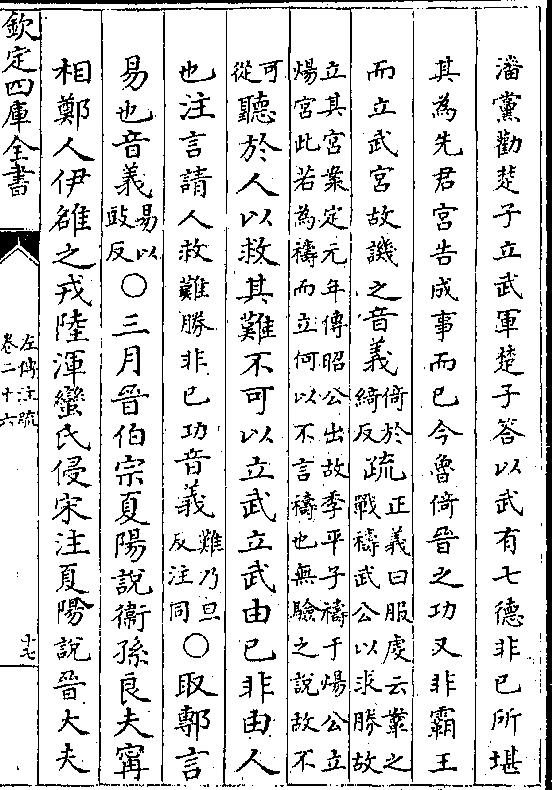 潘黨勸楚子立武軍楚子答以武有七德非已所堪
其為先君宮告成事而已今魯倚晉之功又非霸王
而立武宮故譏之音義倚於綺反疏正義曰服虔云鞌之戰禱武公以求勝故
立其宮案定元年傳昭公出故季平子禱于煬公立
煬宮此若為禱而立何以不言禱也無驗之說故不
可從聽於人以救其難不可以立武立武由已非由人
也注言請人救難勝非已功音義難乃旦反注同○取鄟言
易也音義易以豉反○三月晉伯宗夏陽說衞孫良夫甯
相鄭人伊雒之戎陸渾蠻氏侵宋注夏陽說晉大夫
欽定四庫全書
左傳注疏
卷二十六
十七